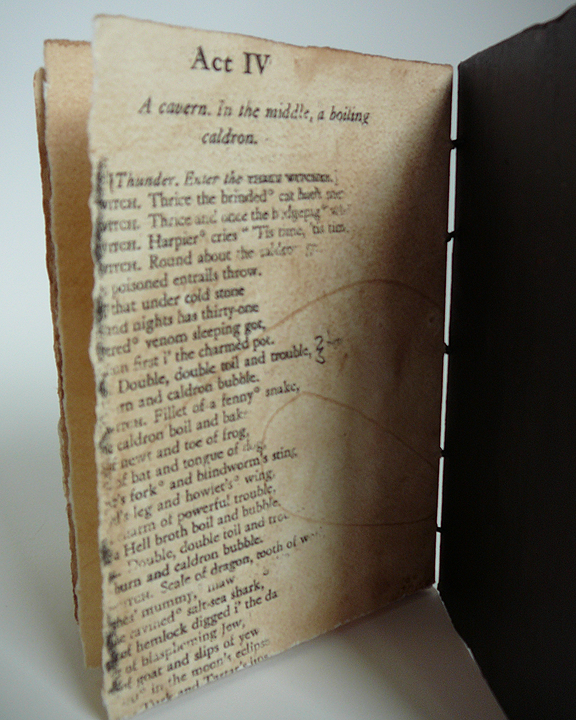 Act IV
A cavern. In the middle, a boiling
caldron.
[Thunder. Enter the THREE WITCHES.]
WITCH. Thrice the brinded° cat hath
WITCH. Thrice and once the
WITCH. Harpier° cries " 'Tis time, 'tis tim
WITCH. Round about the caldron
poisoned entrails throw.
that under cold stone
and nights has thirty-one
venom sleeping got,
first i' the charmed pot.
Double, double toil and trouble,
and caldron bubble.
Fillet of a fenny° snake,
caldron boil and bak
newt and toe of frog,
of bat and tongue of
fork° and blindworm's sting
leg and howlet's° wing,
of powerful trouble,
a Hell broth boil and bubble.
Double, double toil and
burn and caldron bubble.
Scale of dragon, tooth of
mummy, maw
ravined° salt-sea shark,
of hemlock digged i' the da
of blaspheming Jew,
of goat and slips of yew
in the moon's eclipse
and Tartar's